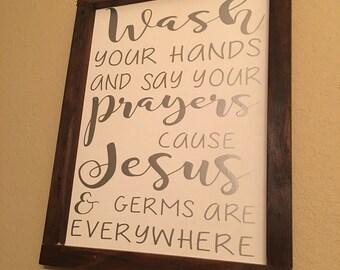 Wash
YOUR HANDS
AND SAY YOUR
prayers
CAUSE
Jesus
& GERMS ARE
EVERYWHERE